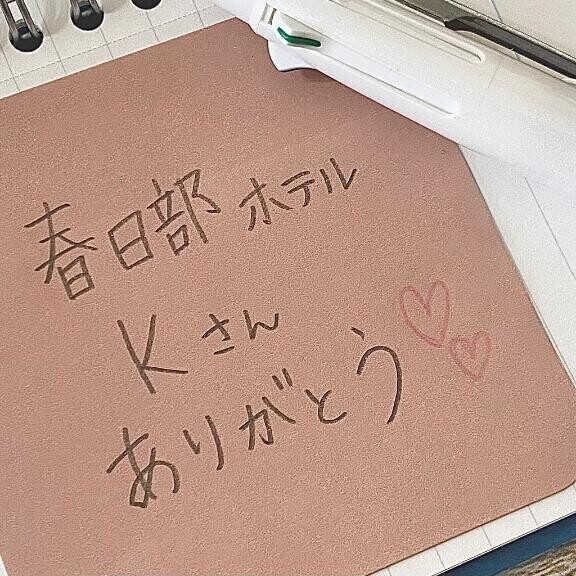 春日部 ホテル
Kさん
ありがとう